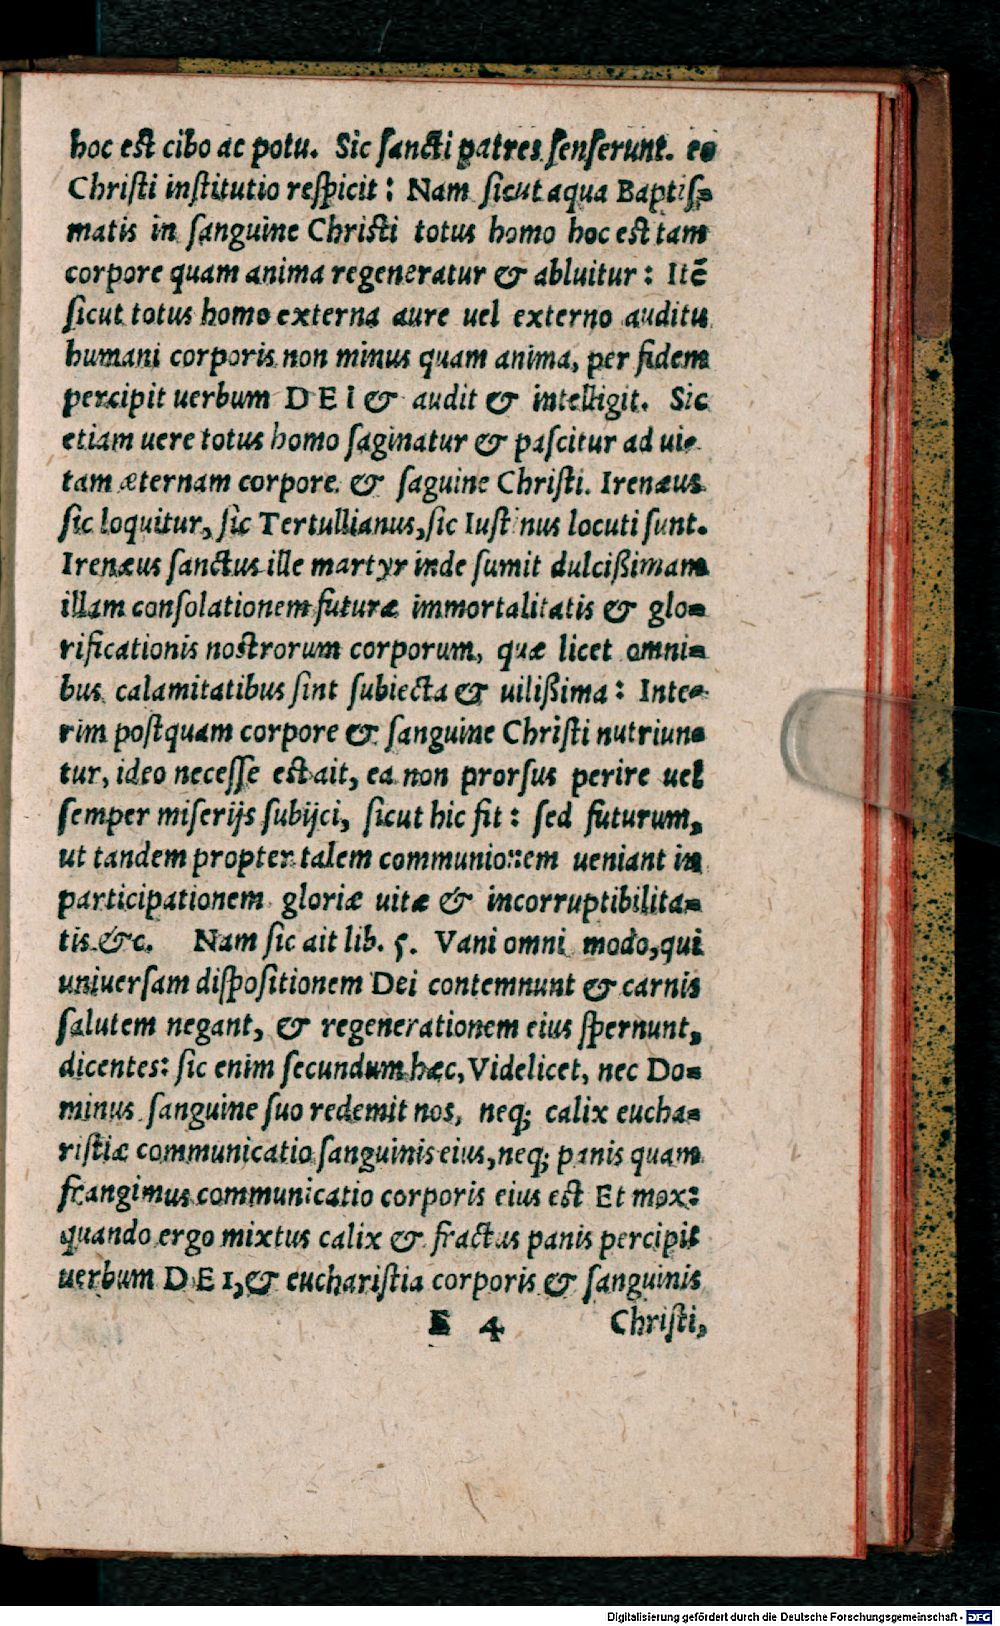 hoc est cibo ac potu. Sic sancti patres senserunt. eo
Christi institutio respicit: Nam sicut aqua Baptis=
matis in sanguine Christi totus homo hoc est tam
corpore quam anima regeneratur & abluitur: Itē
sicut totus homo externa aure uel externo auditu
humani corporis non minus quam anima, per fidem
percipit uerbum DEI & audit & intelligit. Sic
etiam uere totus homo saginatur & pascitur ad ui=
tam æternam corpore & saguine Christi. Irenæus
sic loquitur, sic Tertullianus, sic Iustinus locuti sunt.
Irenæus sanctus ille martyr inde sumit dulcißimam
illam consolationem futuræ immortalitatis & glo=
rificationis nostrorum corporum, quæ licet omni=
bus calamitatibus sint subiecta & uilißima: Inte=
rim postquam corpore & sanguine Christi nutriun=
tur, ideo necesse est ait, ea non prorsus perire uel
semper miserijs subijci, sicut hic fit: sed futurum,
ut tandem propter talem communionem ueniant in
participationem gloriæ uitæ & incorruptibilita=
tis &c. Nam sic ait lib. 5. Vani omni modo, qui
uniuersam dispositionem Dei contemnunt & carnis
salutem negant, & regenerationem eius spernunt,
dicentes: sic enim secundum hæc, Videlicet, nec Do=
minus sanguine suo redemit nos, neq; calix eucha=
ristiæ communicatio sanguinis eius, neq; panis quam
frangimus communicatio corporis eius est Et mox:
quando ergo mixtus calix & fractus panis percipit
uerbum DEI, & eucharistia corporis & sanguinis
E 4 Christi,
Digitalisierung gefördert durch die Deutsche Forschungsgemeinschaft - DFG